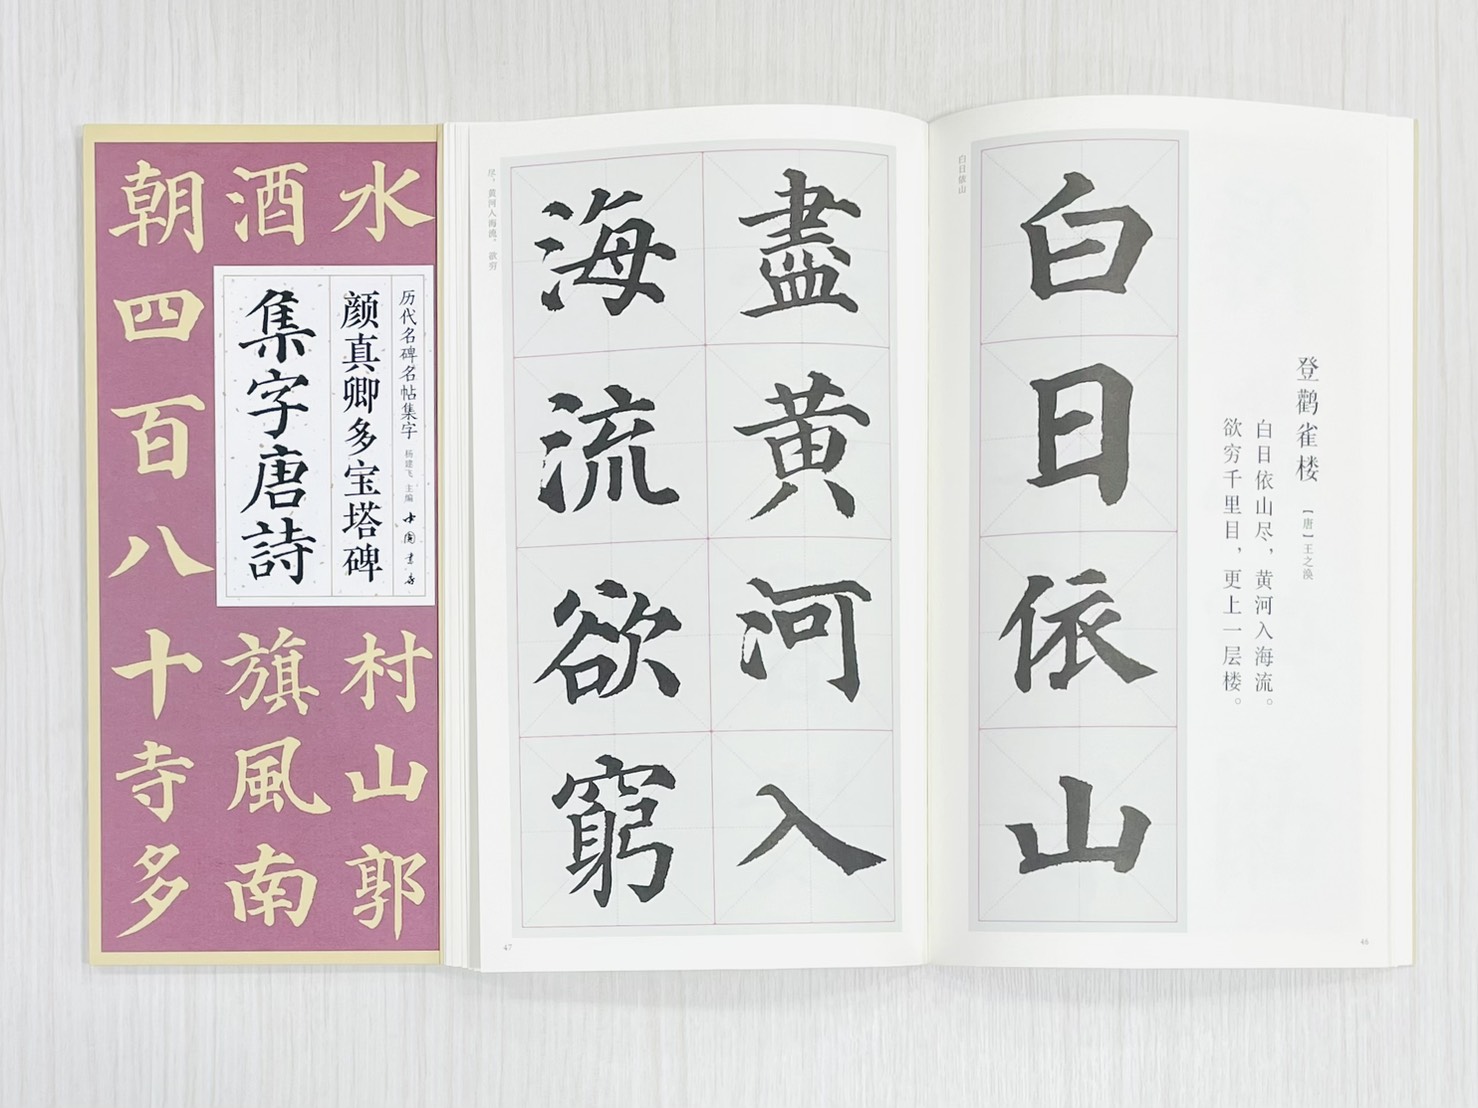 水村山郭
酒旗風南
朝四百八十寺多
历代名碑名帖集字 杨建飞 主编 中国书店
颜真卿多宝塔碑
集字唐詩
登鹳雀楼 【唐】王之涣
白日依山尽，黄河入海流。
欲穷千里目，更上一层楼。
白日依山
白日依山
46
盡黄河入
海流欲窮
尽，黄河入海流。欲穷
47